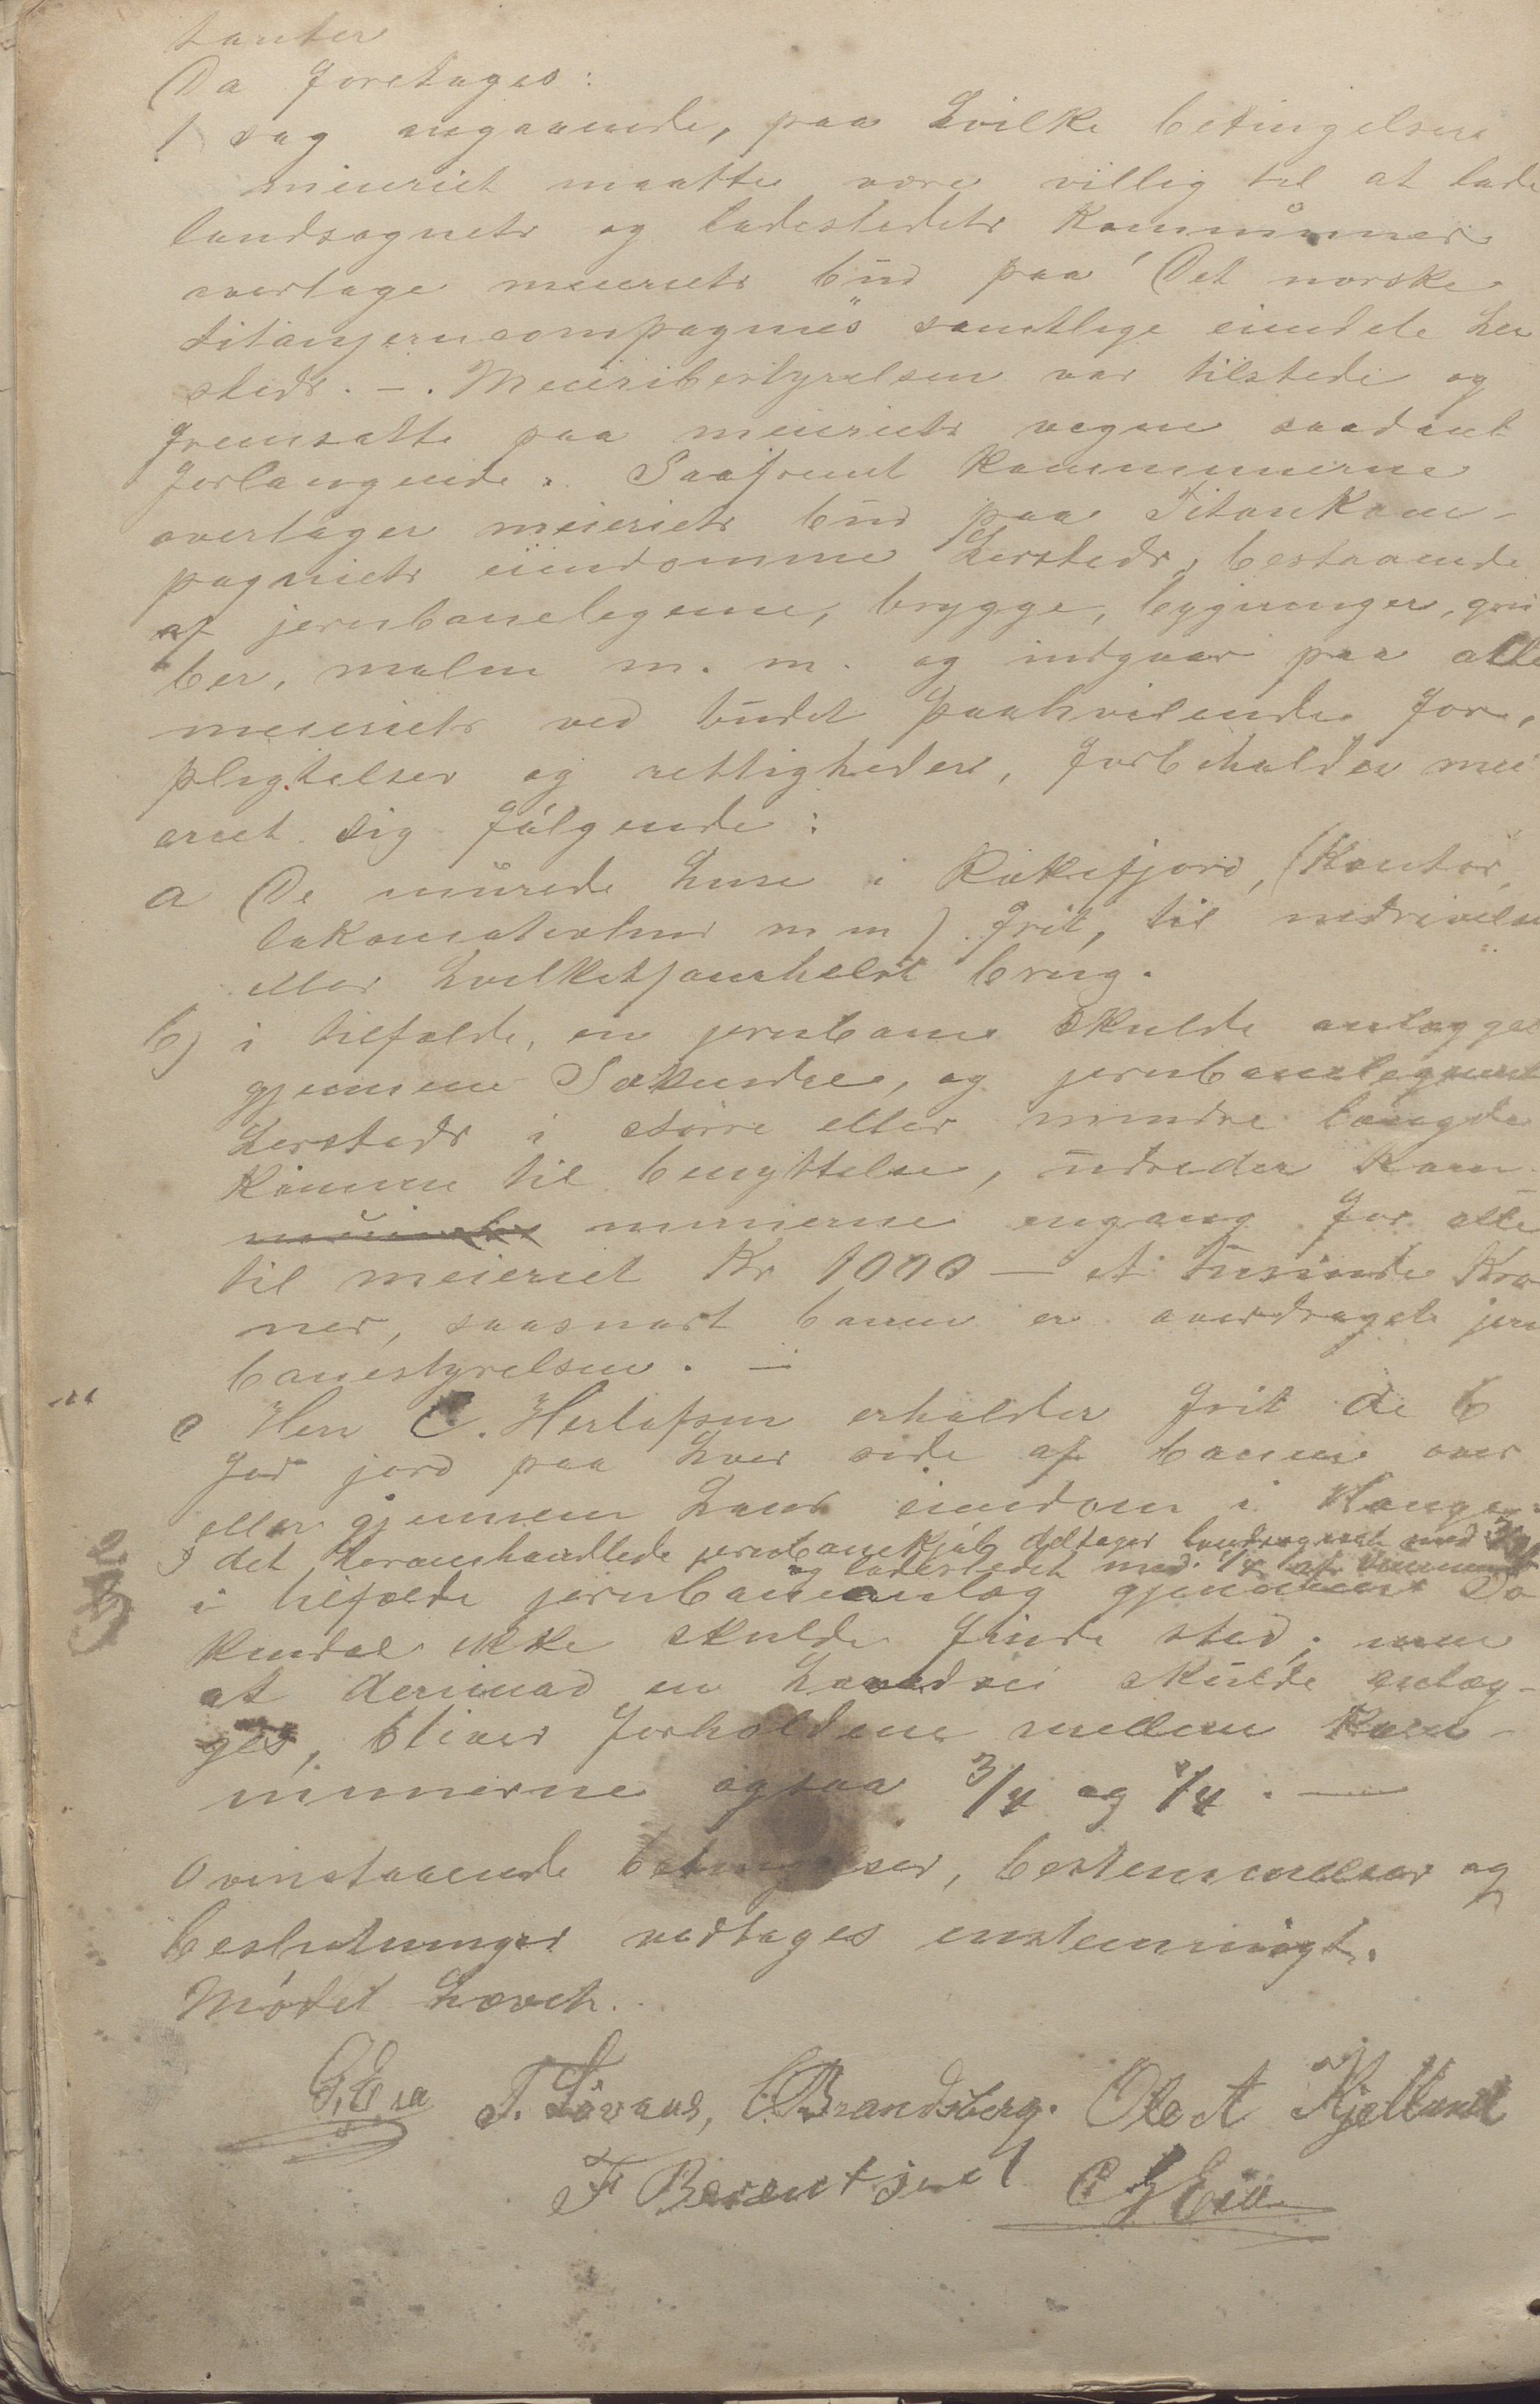 tanter
Da foretages:
1 sag angaaende, paa hvilke betingelser
meieriet maatte være villig til at lade
landsognets og ladestedets Kommuner
overtage meieriets bud paa "Det norske
titanjerncompagnis" samtlige eiendele her
steds. –. Meieribestyrelsen var tilstede og
fremsatte paa meieriets vegne saadant
forlangende: Saafremt Kommunerne
overtager meieriets bud paa Titankom-
pagniets eiendomme hersteds, bestaaende
af jernbanelegeme, brygge, bygninger, gru
ber, malm m. m. og indgaar paa alle
meieriets ved budet paahvilende for-
pligtelser og rettigheder, forbeholder mei
eriet sig følgende:
a De murede huse i Rækefjord, (Kontor,
lokomotivhus m m) frit, til nedrivelse
eller hvilketsomhelst brug.
b) i tilfælde, en jernbane skulde anlægges
gjennem Sokndal, og jernbanelegemet
hersteds i større eller mindre længde
kommer til benyttelse, udreder Kom-
munerne engang for alle
til meieriet Kr 1000 — et tusinde Kro
ner, saasnart banen er overdraget jern
banestyrelsen. –
c Herr C. Herlofsen erholder frit de 6
fod jord paa hver side af banen over
eller gjennem hans eiendom i Hauge.
I det heromhandlede jernbanekjøb deltager landsognet med 3/4
og ladestedet med 1/4 af summen
i tilfælde jernbaneanlæg gjennem So
kndal ikke skulde finde sted; men
at derimod en hovedvei skulde anlæg-
ges, bliver forholdene mellem Kom-
munerne ogsaa 3/4 og 1/4. —
Ovenstaaende betingelser, bestemmelser og
beslutninger vedtages enstemmigt.
Mødet hævet.
G. Eia T. Løvaas, C. Brandsberg. Ole A Kjelland
F Berentsen C G Eia